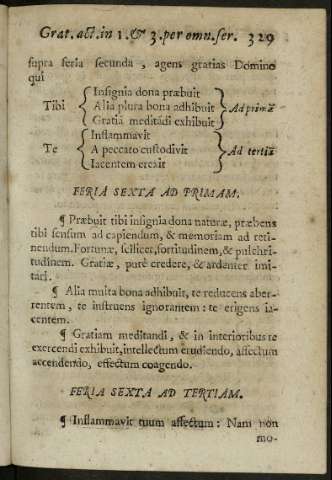 Grat. act. in 1. & 3. per omn. fer. 329
supra feria secunda, agens gratias Domino
qui
Insignia dona præbuit
Tibi Alia plura bona adhibuit Ad primã
Gratiã meditãdi exhibuit
Inflammavit
Te A peccato custodivit Ad tertiã
Iacentem erexit
FERIA SEXTA AD PRIMAM.
¶ Præbuit tibi insignia dona naturæ, præbens
tibi sensum ad capiendum, & memoriam ad reti-
nendum. Fortunæ, scilicet, fortitudinem, & pulchri-
tudinem. Gratiæ, putè credere, & ardenter imi-
tari.
¶ Alia multa bona adhibuit, te reducens aber-
rentem, te instruens ignorantem: te erigens ia-
centem.
¶ Gratiam meditandi, & in interioribus te
exercendi exhibuit, intellectum erudiendo, affectum
accendendo, effectum coagendo.
FERIA SEXTA AD TERTIAM.
¶ Inflammavit tuum affectum: Nam non
mo-